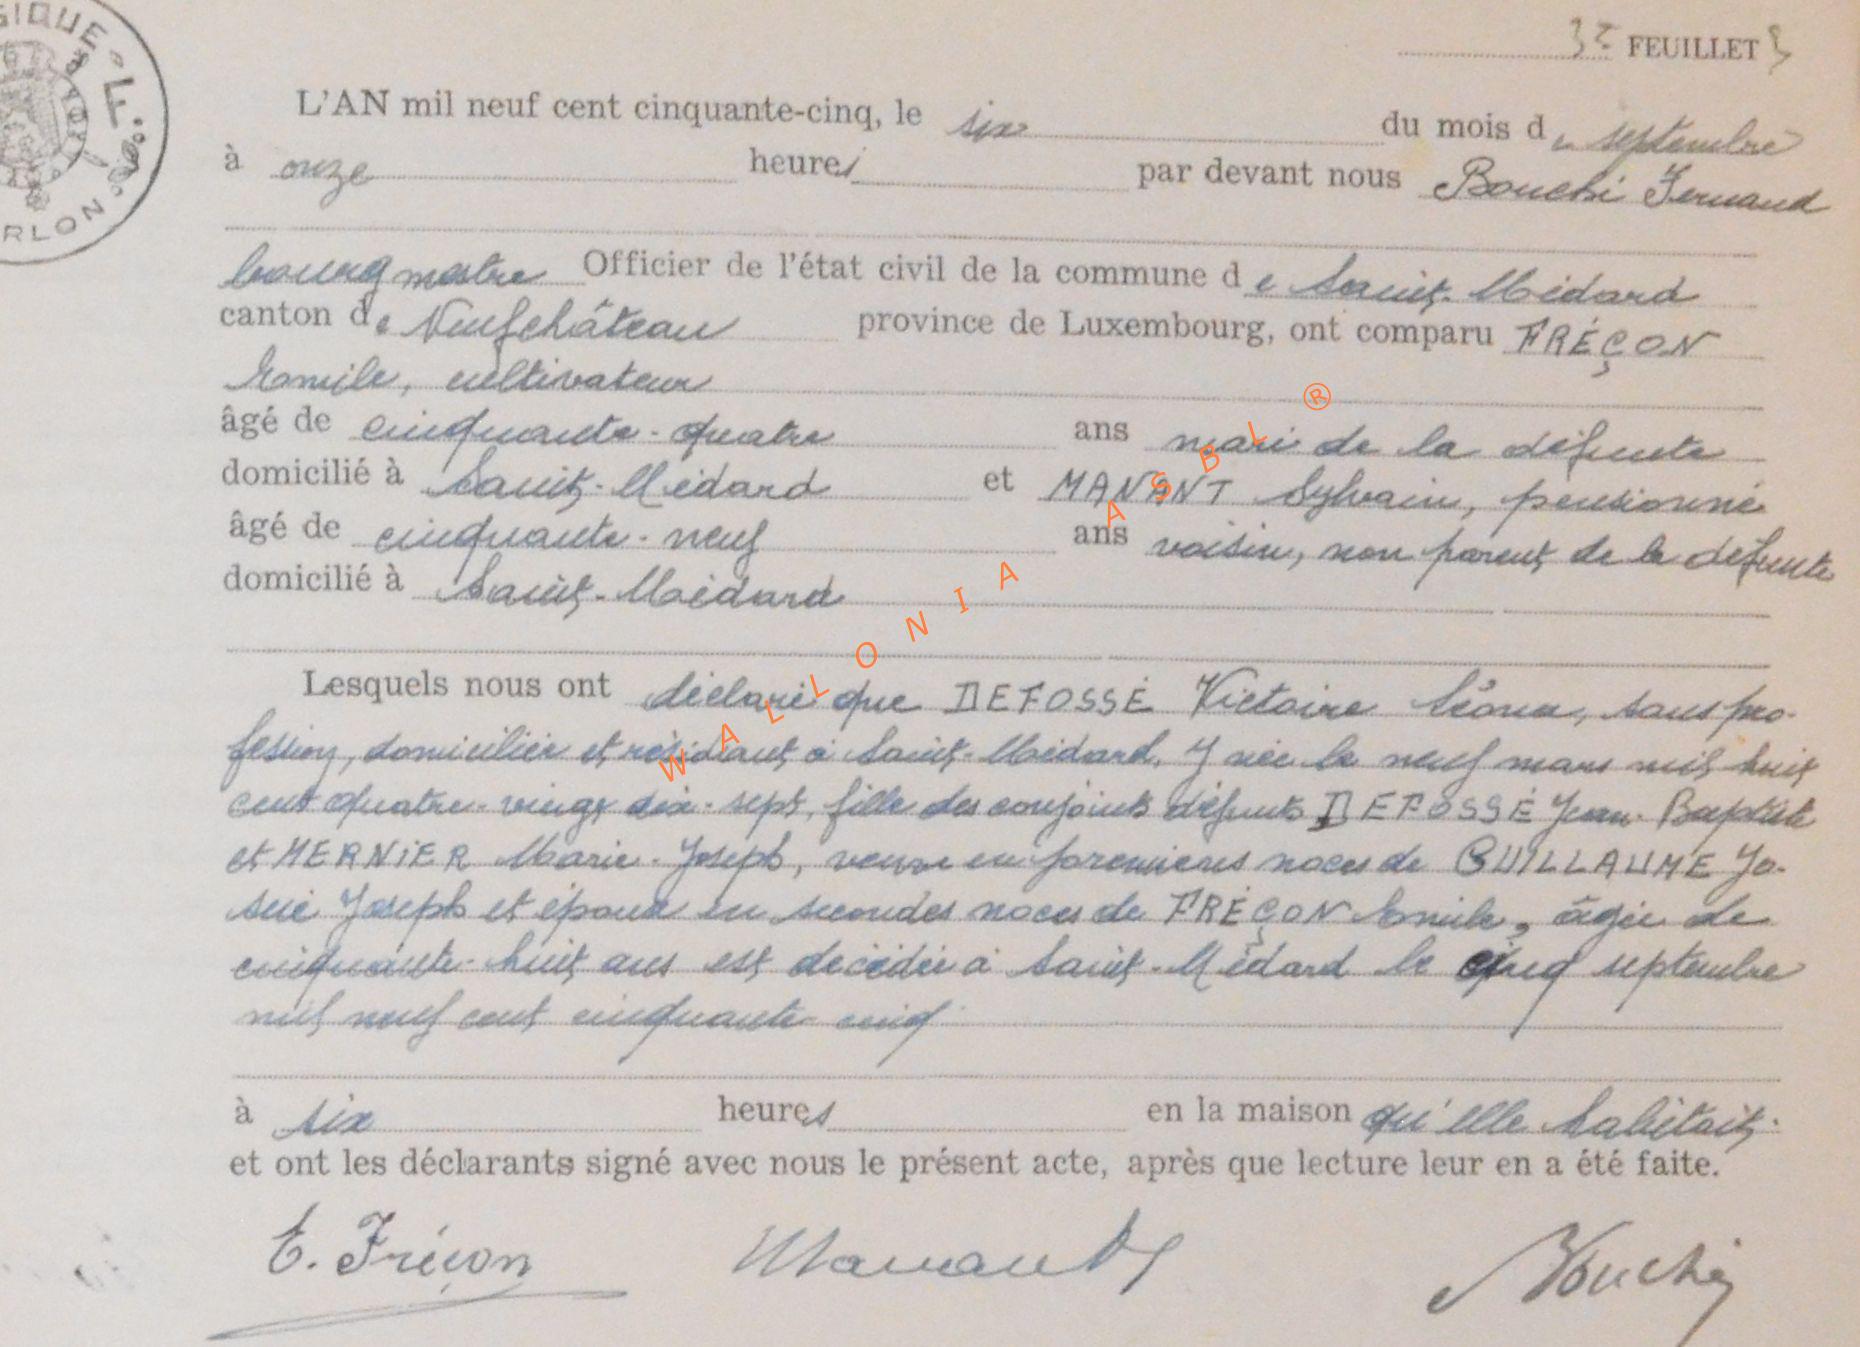 3e FEUILLET 3
L'AN mil neuf cent cinquante-cinq, le six du mois de septembre
à onze heures par devant nous Bouché Fernand
bourgmestre Officier de l'état civil de la commune de Saint-Médard
canton de Neufchâteau province de Luxembourg, ont comparu FRÉÇON
Emile, cultivateur
âgé de cinquante-quatre ans mari de la défunte
domicilié à Saint-Médard et MANANT Sylvain, pensionné
âgé de cinquante-neuf ans voisin, non parent de la défunte
domicilié à Saint-Médard
Lesquels nous ont déclaré que DEFOSSÉ Victoire Léona, sans pro-
fession, domiciliée et résidant à Saint-Médard, y née le neuf mars mil huit
cent quatre-vingt dix-sept, fille des conjoints défunts DEFOSSÉ Jean-Baptiste
et HERNIER Marie-Joseph, veuve en premières noces de GUILLAUME Jo-
sué Joseph et épouse en secondes noces de FRÉÇON Emile, âgée de
cinquante-huit ans est décédée à Saint-Médard le cinq septembre
mil neuf cent cinquante-cinq
à six heures en la maison qu'elle habitait.
et ont les déclarants signé avec nous le présent acte, après que lecture leur en a été faite.
E. Fréçon Manant Bouché
WALLONIA ASBL ®